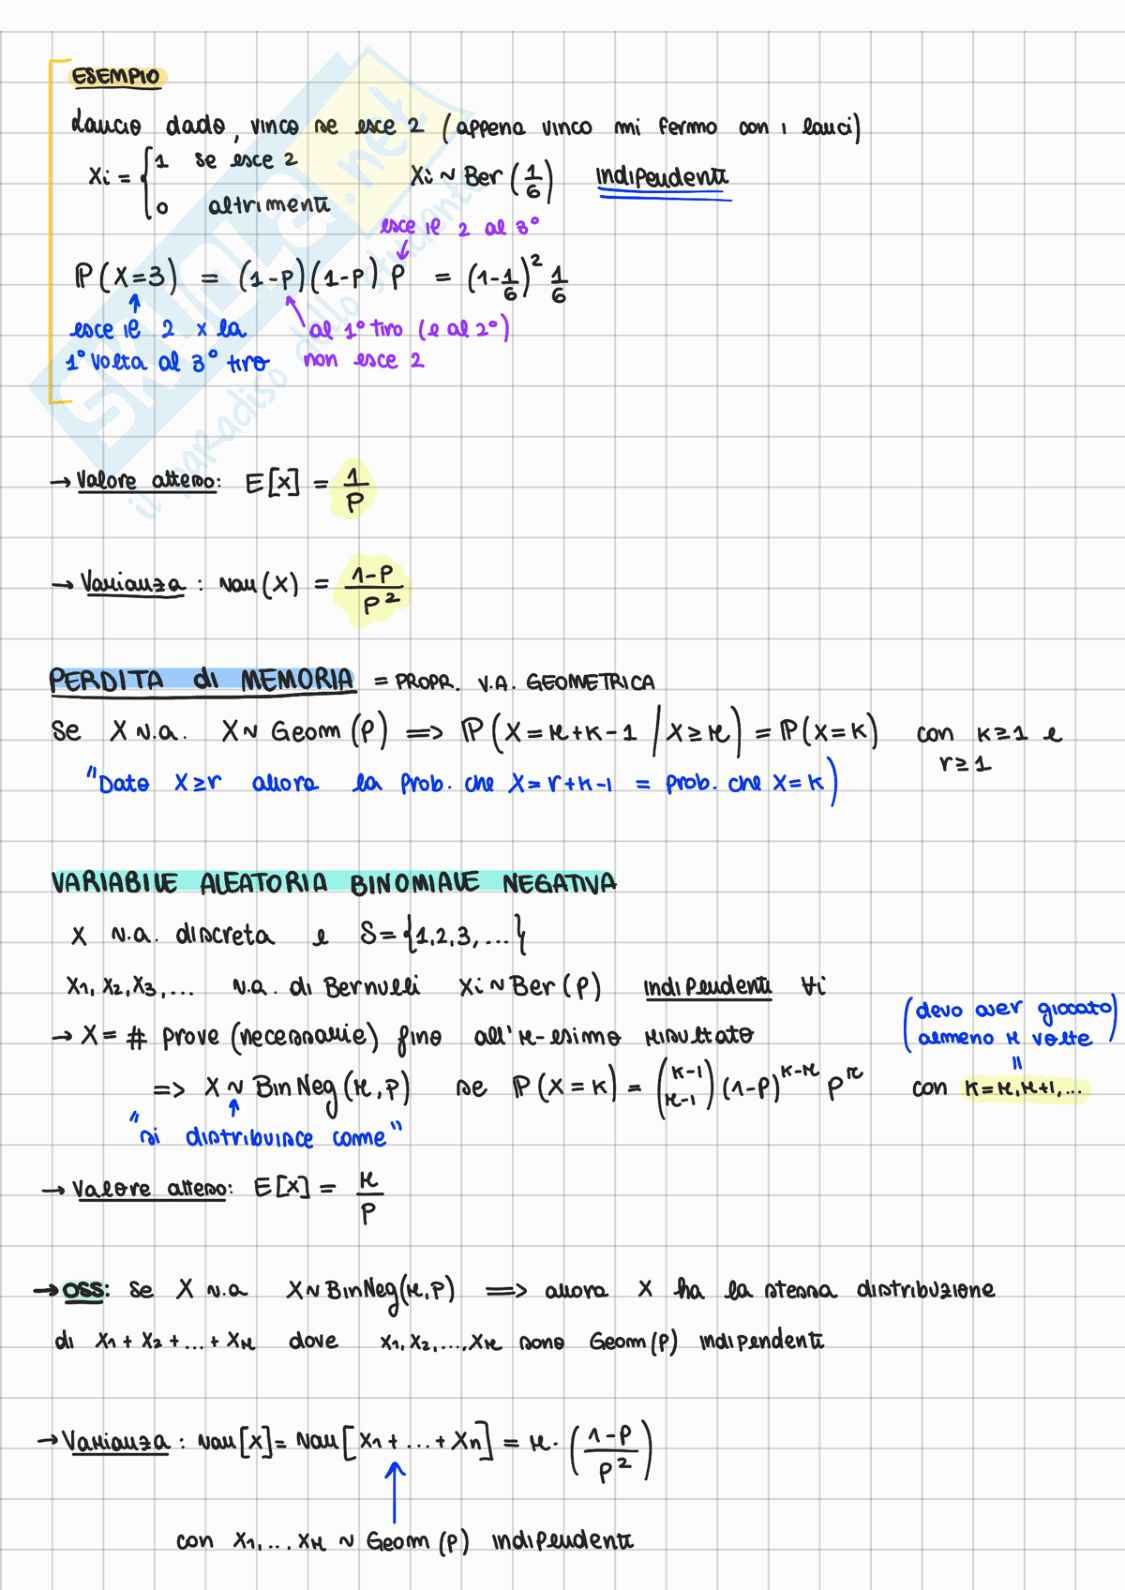 ESEMPIO
Lancio dado, vinco se esce 2 (appena vinco mi fermo con i lanci)
Xi = { 1 se esce 2
0 altrimenti
Xi ~ Ber(1/6) indipendenti
esce il 2 al 3°
P(X=3) = (1-p)(1-p) p = (1-1/6)² 1/6
esce il 2 x la
1° volta al 3° tiro
al 1° tiro (e al 2°)
non esce 2
→ Valore atteso: E[X] = 1/p
→ Varianza: var(X) = 1-p/p²
PERDITA di MEMORIA = PROPR. V.A. GEOMETRICA
Se X v.a. X~ Geom(p) => P(X=r+k-1 | X≥r) = P(X=k) con k≥1 e
r≥1
"Dato X≥r allora la prob. che X=r+k-1 = prob. che X=k)
VARIABILE ALEATORIA BINOMIALE NEGATIVA
X v.a. discreta e S={1,2,3,...}
X1, X2, X3,... v.a. di Bernulli Xi~Ber(p) indipendenti ∀i
(devo aver giocato)
(almeno r volte)
=
→ X = # prove (necessarie) fino all'r-esimo risultato
=> X ~ BinNeg(r,p) se P(X=k) = (k-1 r-1) (1-p)^k-r p^r con k=r,r+1,...
"si distribuisce come"
→ Valore atteso: E[X] = r/p
→ OSS: Se X v.a X~BinNeg(r,p) => allora X ha la stessa distribuzione
di X1 + X2 + ... + Xr dove X1, X2,..., Xr sono Geom(p) indipendenti
→ Varianza: var[X] = Var[X1 + ... + Xn] = r·(1-p/p²)
con X1,... Xr ~ Geom(p) indipendenti
SKUOLA.net
il paradiso dello studente